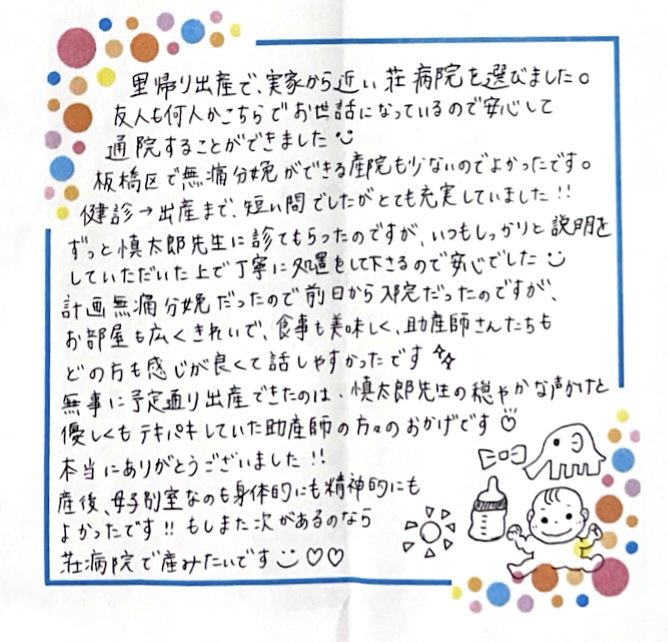 里帰り出産で、実家から近い荘病院を選びました。
友人も何人かこちらでお世話になっているので安心して
通院することができました
板橋区で無痛分娩ができる産院も少ないのでよかったです。
健診→出産まで、短い間でしたがとても充実していました!!
ずっと慎太郎先生に診てもらったのですが、いつもしっかりと説明を
していただいた上で丁寧に処置をして下さるので安心でした
計画無痛分娩だったので前日から入院だったのですが、
お部屋も広くきれいで、食事も美味しく、助産師さんたちも
どの方も感じが良くて話しやすかったです
無事に予定通り出産できたのは、慎太郎先生の穏やかな声かけと
優しくもテキパキしていた助産師の方々のおかげです♡
本当にありがとうございました!!
産後、母子別室なのも身体的にも精神的にも
よかったです!!もしまた次があるのなら
荘病院で産みたいです♡♡